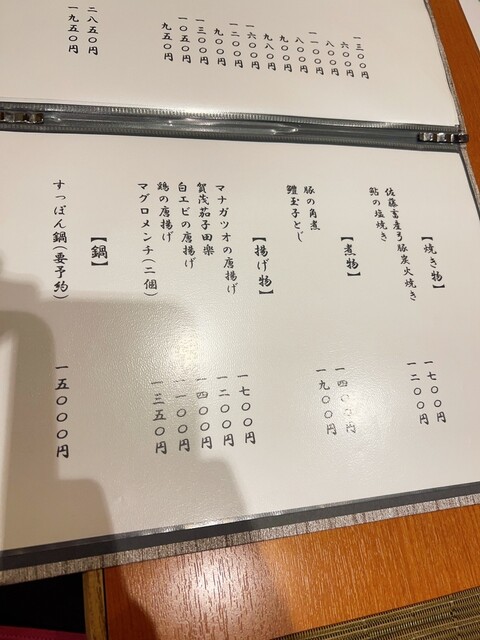 一三〇〇円
六〇〇円
八〇〇円
一一〇〇円
八〇〇円
九〇〇円
九八〇円
一六〇〇円
一二〇〇円
九〇〇円
一三〇〇円
一〇五〇円
九五〇円
二八五〇円
一九五〇円
【焼き物】
佐藤畜産弓豚炭火焼き 一七〇〇円
鮎の塩焼き 一二〇〇円
【煮物】
豚の角煮 一四〇〇円
鱧玉子とじ 一九〇〇円
【揚げ物】
マナガツオの唐揚げ 一七〇〇円
賀茂茄子田楽 一二〇〇円
白エビの唐揚げ 一四〇〇円
鶏の唐揚げ 一一〇〇円
マグロメンチ(二個) 一三五〇円
【鍋】
すっぽん鍋(要予約) 一五〇〇〇円